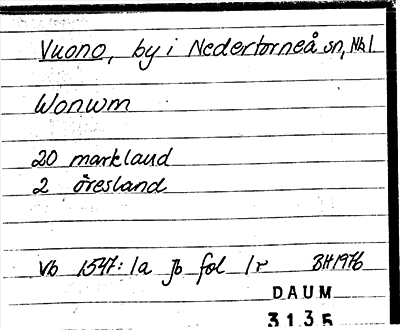 Vuono, by i Nedertorneå sn, Nbl.
Wonwm
20 markland
2 öresland
Vb 1547:1a Jb fol 1r BH1976
DAUM
3135